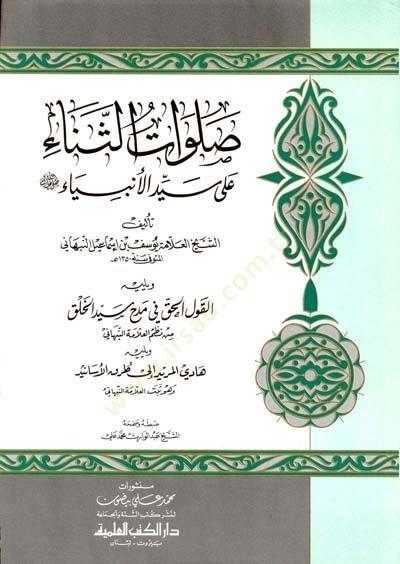 صَلَوَاتُ الثَّنَاءِ
عَلَى سَيِّدِ الأَنْبِيَاءِ ﷺ
تأليف
الشيخ العلامة يوسف بن إسماعيل النبهاني
المتوفى سنة ١٣٥٠هـ
ويليه
القول الحق في مدح سيد الخلق
من نظم العلامة النبهاني
ويليه
هادي المريد إلى طرق الأسانيد
وهو ثبت العلامة النبهاني
ضبطه وصححه
الشيخ عبد الوارث محمد علي
منشورات
محمد علي بيضون
لنشر كتب السنة والجماعة
دار الكتب العلمية
بيروت - لبنان